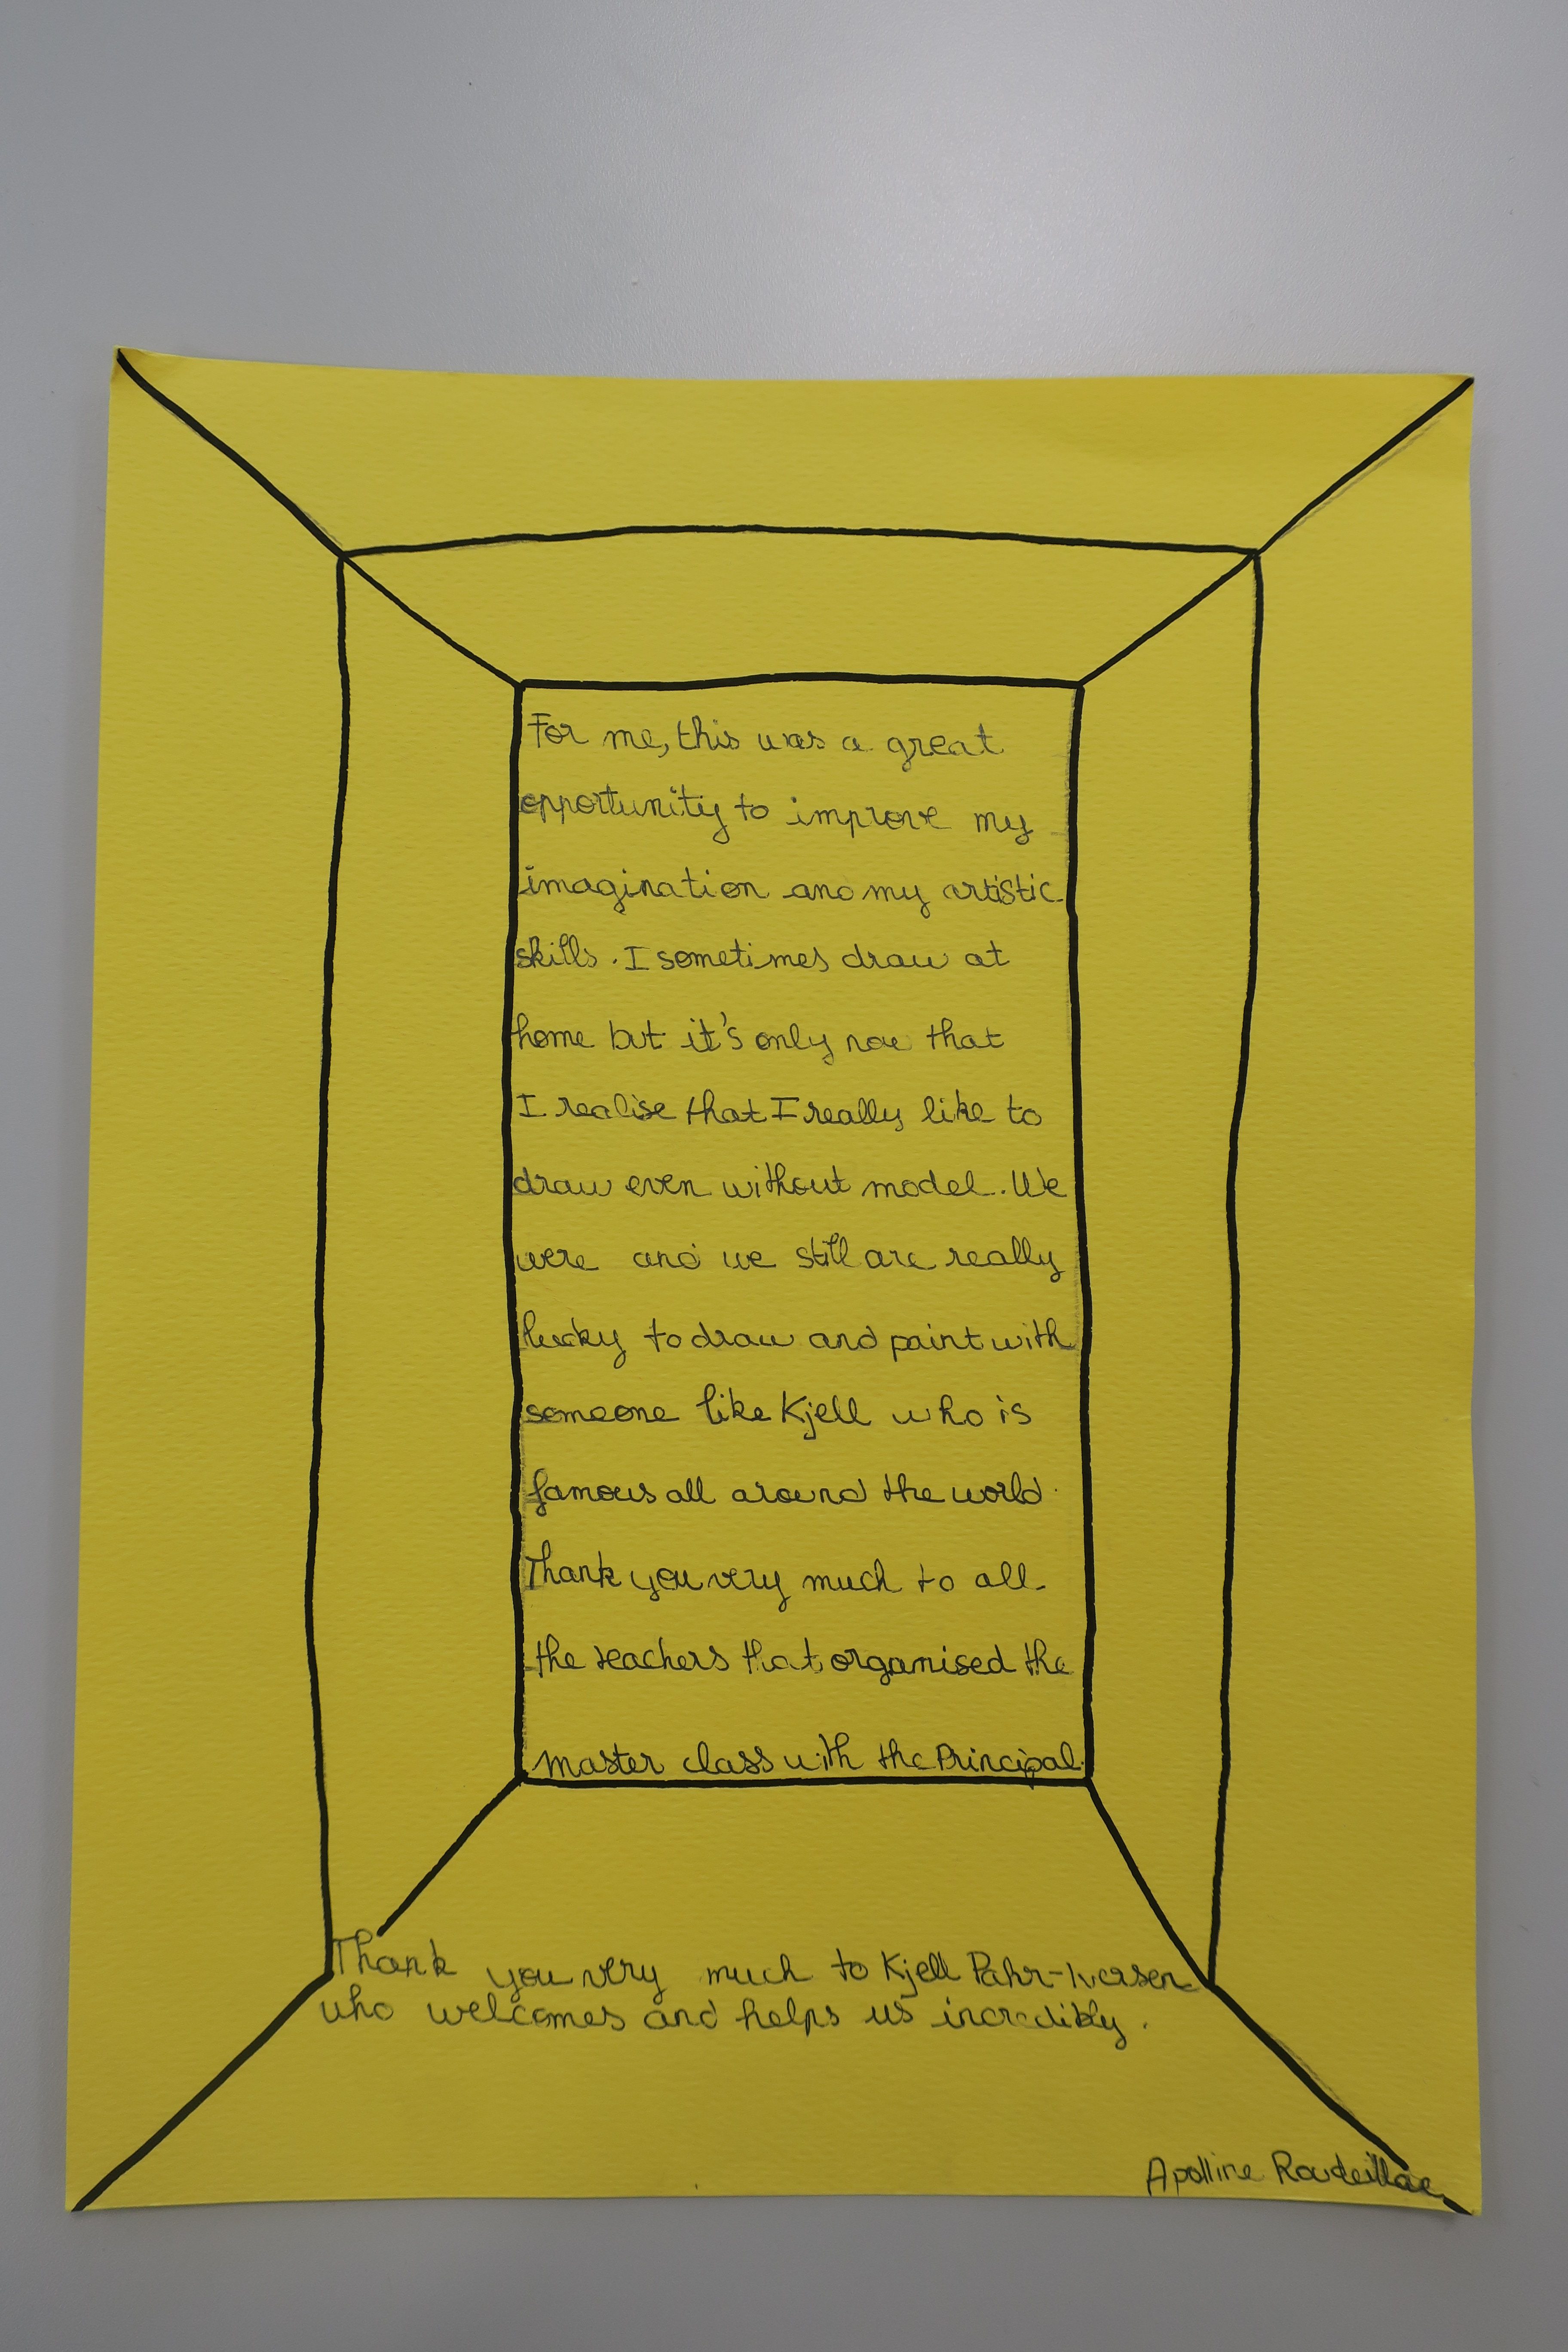 For me, this was a great
opportunity to improve my
imagination and my artistic
skills. I sometimes draw at
home but it's only now that
I realise that I really like to
draw even without model. We
were and we still are really
lucky to draw and paint with
someone like Kjell who is
famous all around the world.
Thank you very much to all
the teachers that organised the
master class with the Principal.
Thank you very much to Kjell Pahr-Iversen
who welcomes and helps us incredibly.
Apolline